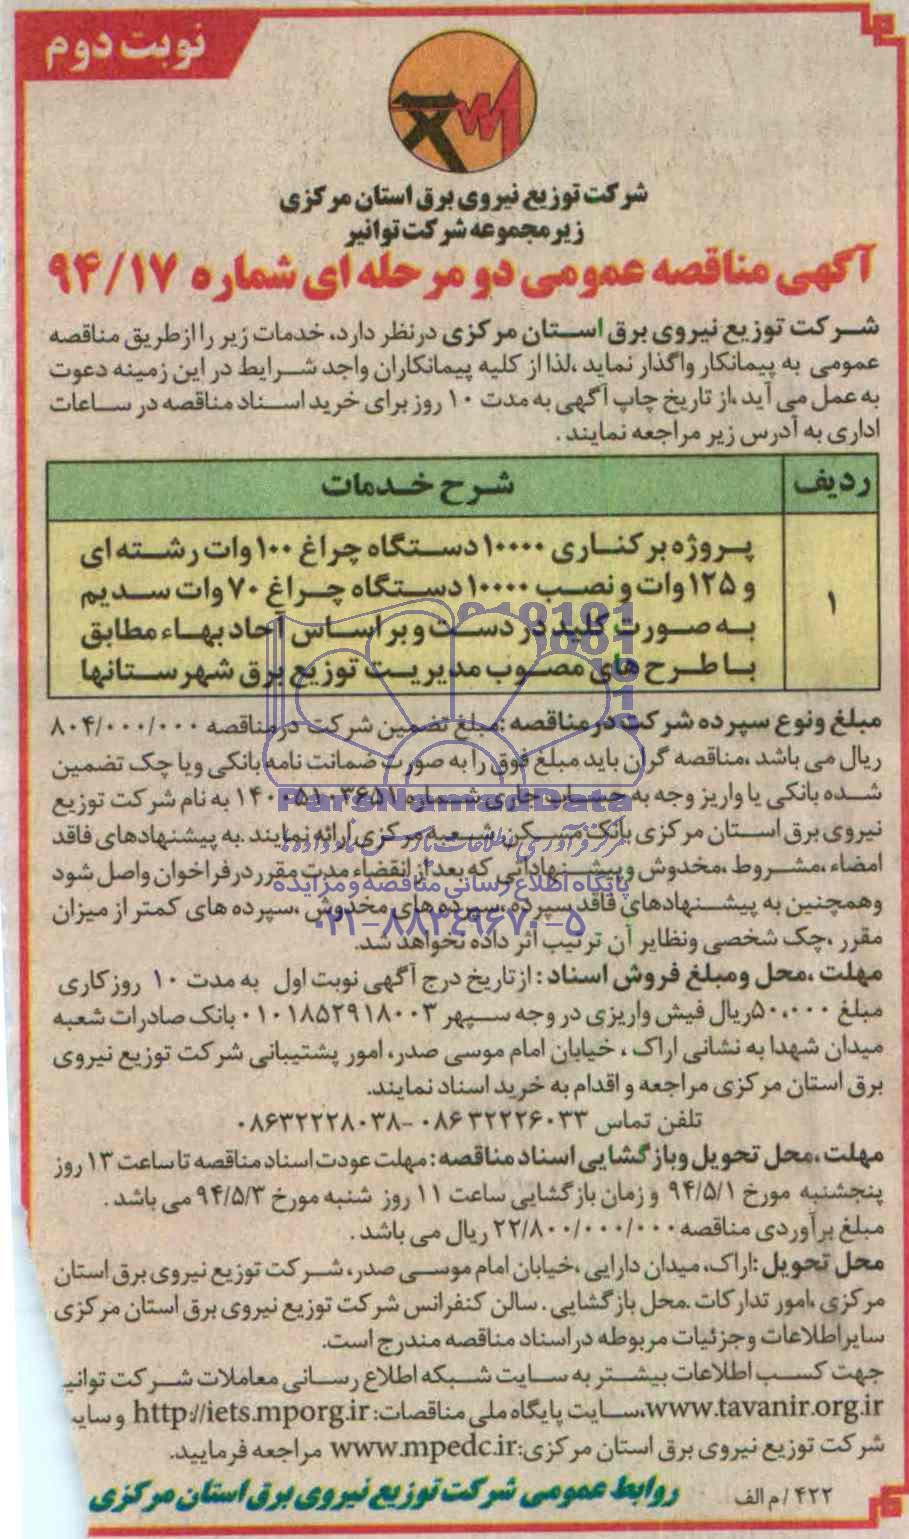 نوبت دوم
شرکت توزیع نیروی برق استان مرکزی
زیرمجموعه شرکت توانیر
آگهی مناقصه عمومی دو مرحله ای شماره ۹۴/۱۷
شرکت توزیع نیروی برق استان مرکزی درنظر دارد، خدمات زیر را ازطریق مناقصه
عمومی به پیمانکار واگذار نماید ،لذا از کلیه پیمانکاران واجد شرایط در این زمینه دعوت
به عمل می آید ،از تاریخ چاپ آگهی به مدت ۱۰ روز برای خرید اسناد مناقصه در ساعات
اداری به آدرس زیر مراجعه نمایند .
ردیف شرح خدمات
۱
پروژه برکناری ۱۰۰۰۰ دستگاه چراغ ۱۰۰ وات رشته ای
و ۱۲۵ وات و نصب ۱۰۰۰۰ دستگاه چراغ ۷۰ وات سدیم
به صورت کلید در دست و بر اساس آحاد بهاء مطابق
با طرح های مصوب مدیریت توزیع برق شهرستانها
مبلغ ونوع سپرده شرکت درمناقصه :مبلغ تضمین شرکت درمناقصه ۸۰۴/۰۰۰/۰۰۰
ریال می باشد ،مناقصه گران باید مبلغ فوق را به صورت ضمانت نامه بانکی ویا چک تضمین
شده بانکی یا واریز وجه به حساب جاری شماره ۱۴۰۰۵۱۰۳۶۵۱ به نام شرکت توزیع
نیروی برق استان مرکزی بانک مسکن شعبه مرکزی ارائه نمایند .به پیشنهادهای فاقد
امضاء ،مشروط ،مخدوش وپیشنهاداتی که بعد از انقضاء مدت مقرر در فراخوان واصل شود
وهمچنین به پیشنهادهای فاقد سپرده ،سپرده های مخدوش ،سپرده های کمتر از میزان
مقرر ،چک شخصی ونظایر آن ترتیب اثر داده نخواهد شد.
ParsNamadData
پایگاه اطلاع رسانی مناقصه و مزایده
۰۲۱-۸۸۳۴۹۶۷۰-۵
مهلت ،محل ومبلغ فروش اسناد : ازتاریخ درج آگهی نوبت اول به مدت ۱۰ روز کاری
مبلغ ۵۰،۰۰۰ریال فیش واریزی در وجه سپهر ۰۱۰۱۸۵۲۹۱۸۰۰۳ بانک صادرات شعبه
میدان شهدا به نشانی اراک ، خیابان امام موسی صدر، امور پشتیبانی شرکت توزیع نیروی
برق استان مرکزی مراجعه و اقدام به خرید اسناد نمایند.
تلفن تماس ۰۸۶۳۲۲۲۶۰۳۳-۰۸۶۳۲۲۲۸۰۳۸
مهلت ،محل تحویل وبازگشایی اسناد مناقصه : مهلت عودت اسناد مناقصه تا ساعت ۱۳ روز
پنجشنبه مورخ ۹۴/۵/۱ و زمان بازگشایی ساعت ۱۱ روز شنبه مورخ ۹۴/۵/۳ می باشد .
مبلغ برآوردی مناقصه ۲۲/۸۰۰/۰۰۰/۰۰۰ ریال می باشد .
محل تحویل :اراک، میدان دارایی ،خیابان امام موسی صدر، شرکت توزیع نیروی برق استان
مرکزی ،امور تدارکات .محل بازگشایی . سالن کنفرانس شرکت توزیع نیروی برق استان مرکزی
سایراطلاعات وجزئیات مربوطه دراسناد مناقصه مندرج است.
جهت کسب اطلاعات بیشتر به سایت شبکه اطلاع رسانی معاملات شرکت توانیر
www.tavanir.org.ir،سایت پایگاه ملی مناقصات: http://iets.mporg.ir و سایت
شرکت توزیع نیروی برق استان مرکزی:www.mpedc.ir مراجعه فرمایید.
۴۲۲/م الف روابط عمومی شرکت توزیع نیروی برق استان مرکزی